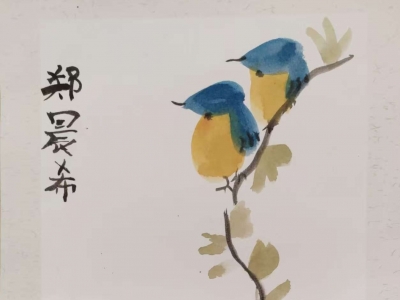 郑晨希